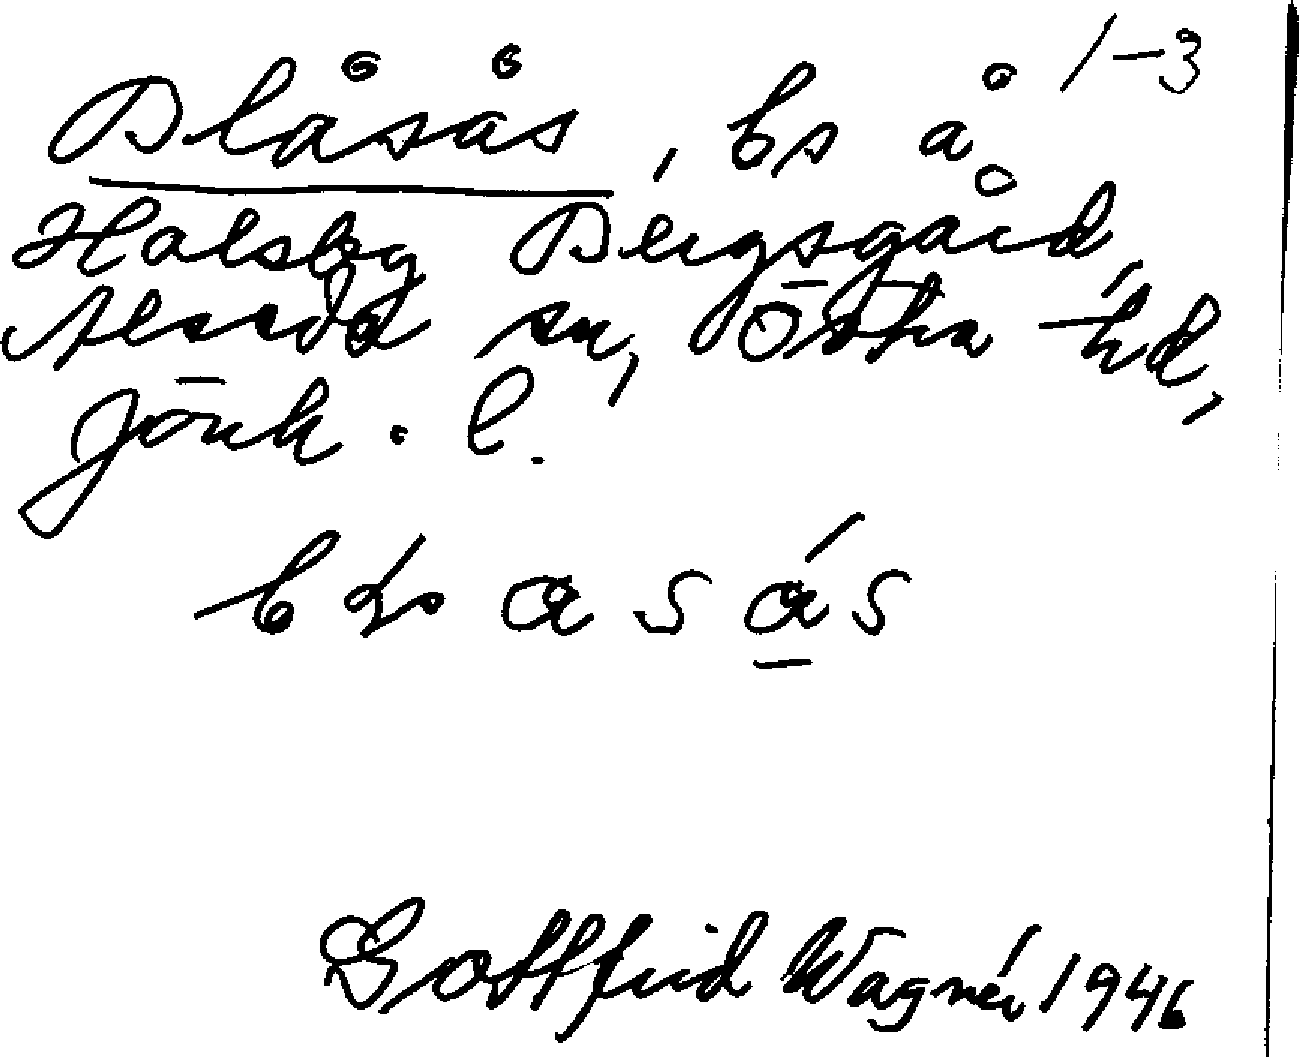 Blåsås, bs å 1-3
Holsby Bergsgård,
Alseda sn, Östra hd,
Jönk. l.
Gottfrid Wagnér 1946